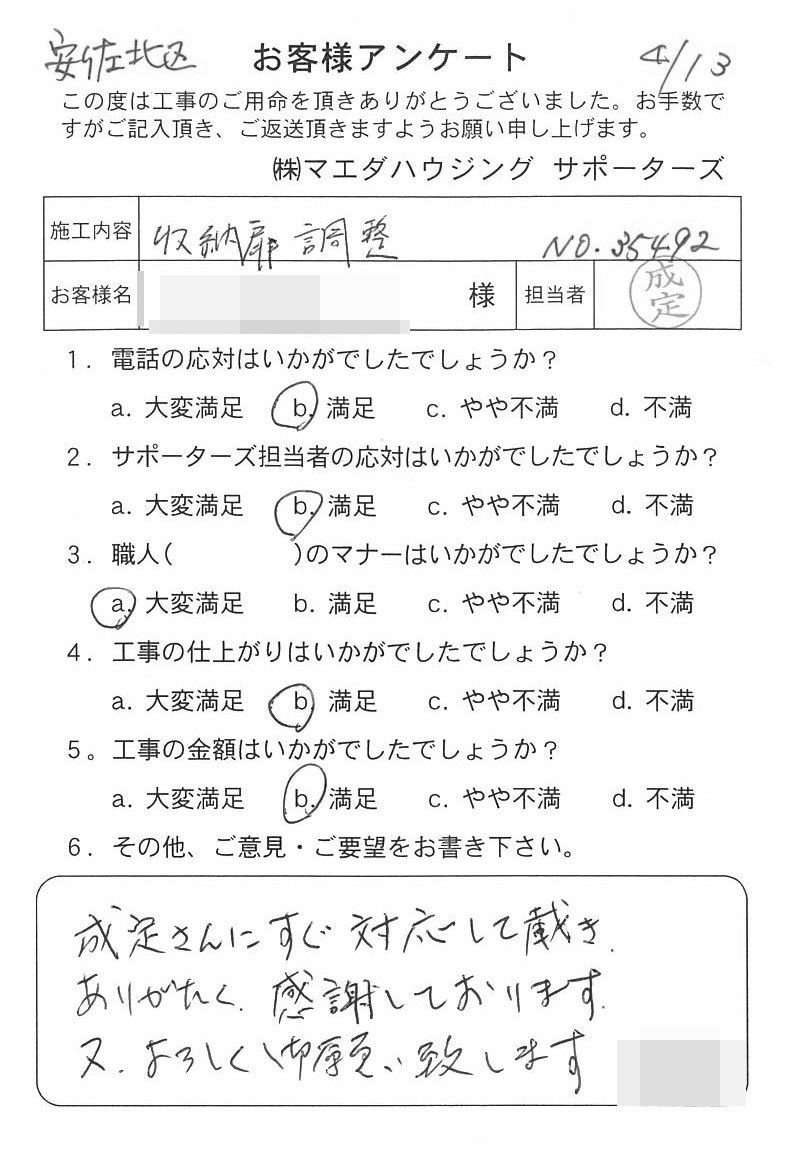 安佐北区 お客様アンケート 4/13
この度は工事のご用命を頂きありがとうございました。お手数で
すがご記入頂き、ご返送頂きますようお願い申し上げます。
㈱マエダハウジング サポーターズ
施工内容 収納扉調整 NO.35492
お客様名 様 担当者 成定
1. 電話の応対はいかがでしたでしょうか?
a. 大変満足 b. 満足 c. やや不満 d. 不満
2. サポーターズ担当者の応対はいかがでしたでしょうか?
a. 大変満足 b. 満足 c. やや不満 d. 不満
3. 職人( )のマナーはいかがでしたでしょうか?
a. 大変満足 b. 満足 c. やや不満 d. 不満
4. 工事の仕上がりはいかがでしたでしょうか?
a. 大変満足 b. 満足 c. やや不満 d. 不満
5。工事の金額はいかがでしたでしょうか?
a. 大変満足 b. 満足 c. やや不満 d. 不満
6. その他、ご意見・ご要望をお書き下さい。
成定さんにすぐ対応して戴き、
ありがたく、感謝しております。
又、よろしく御願い致します